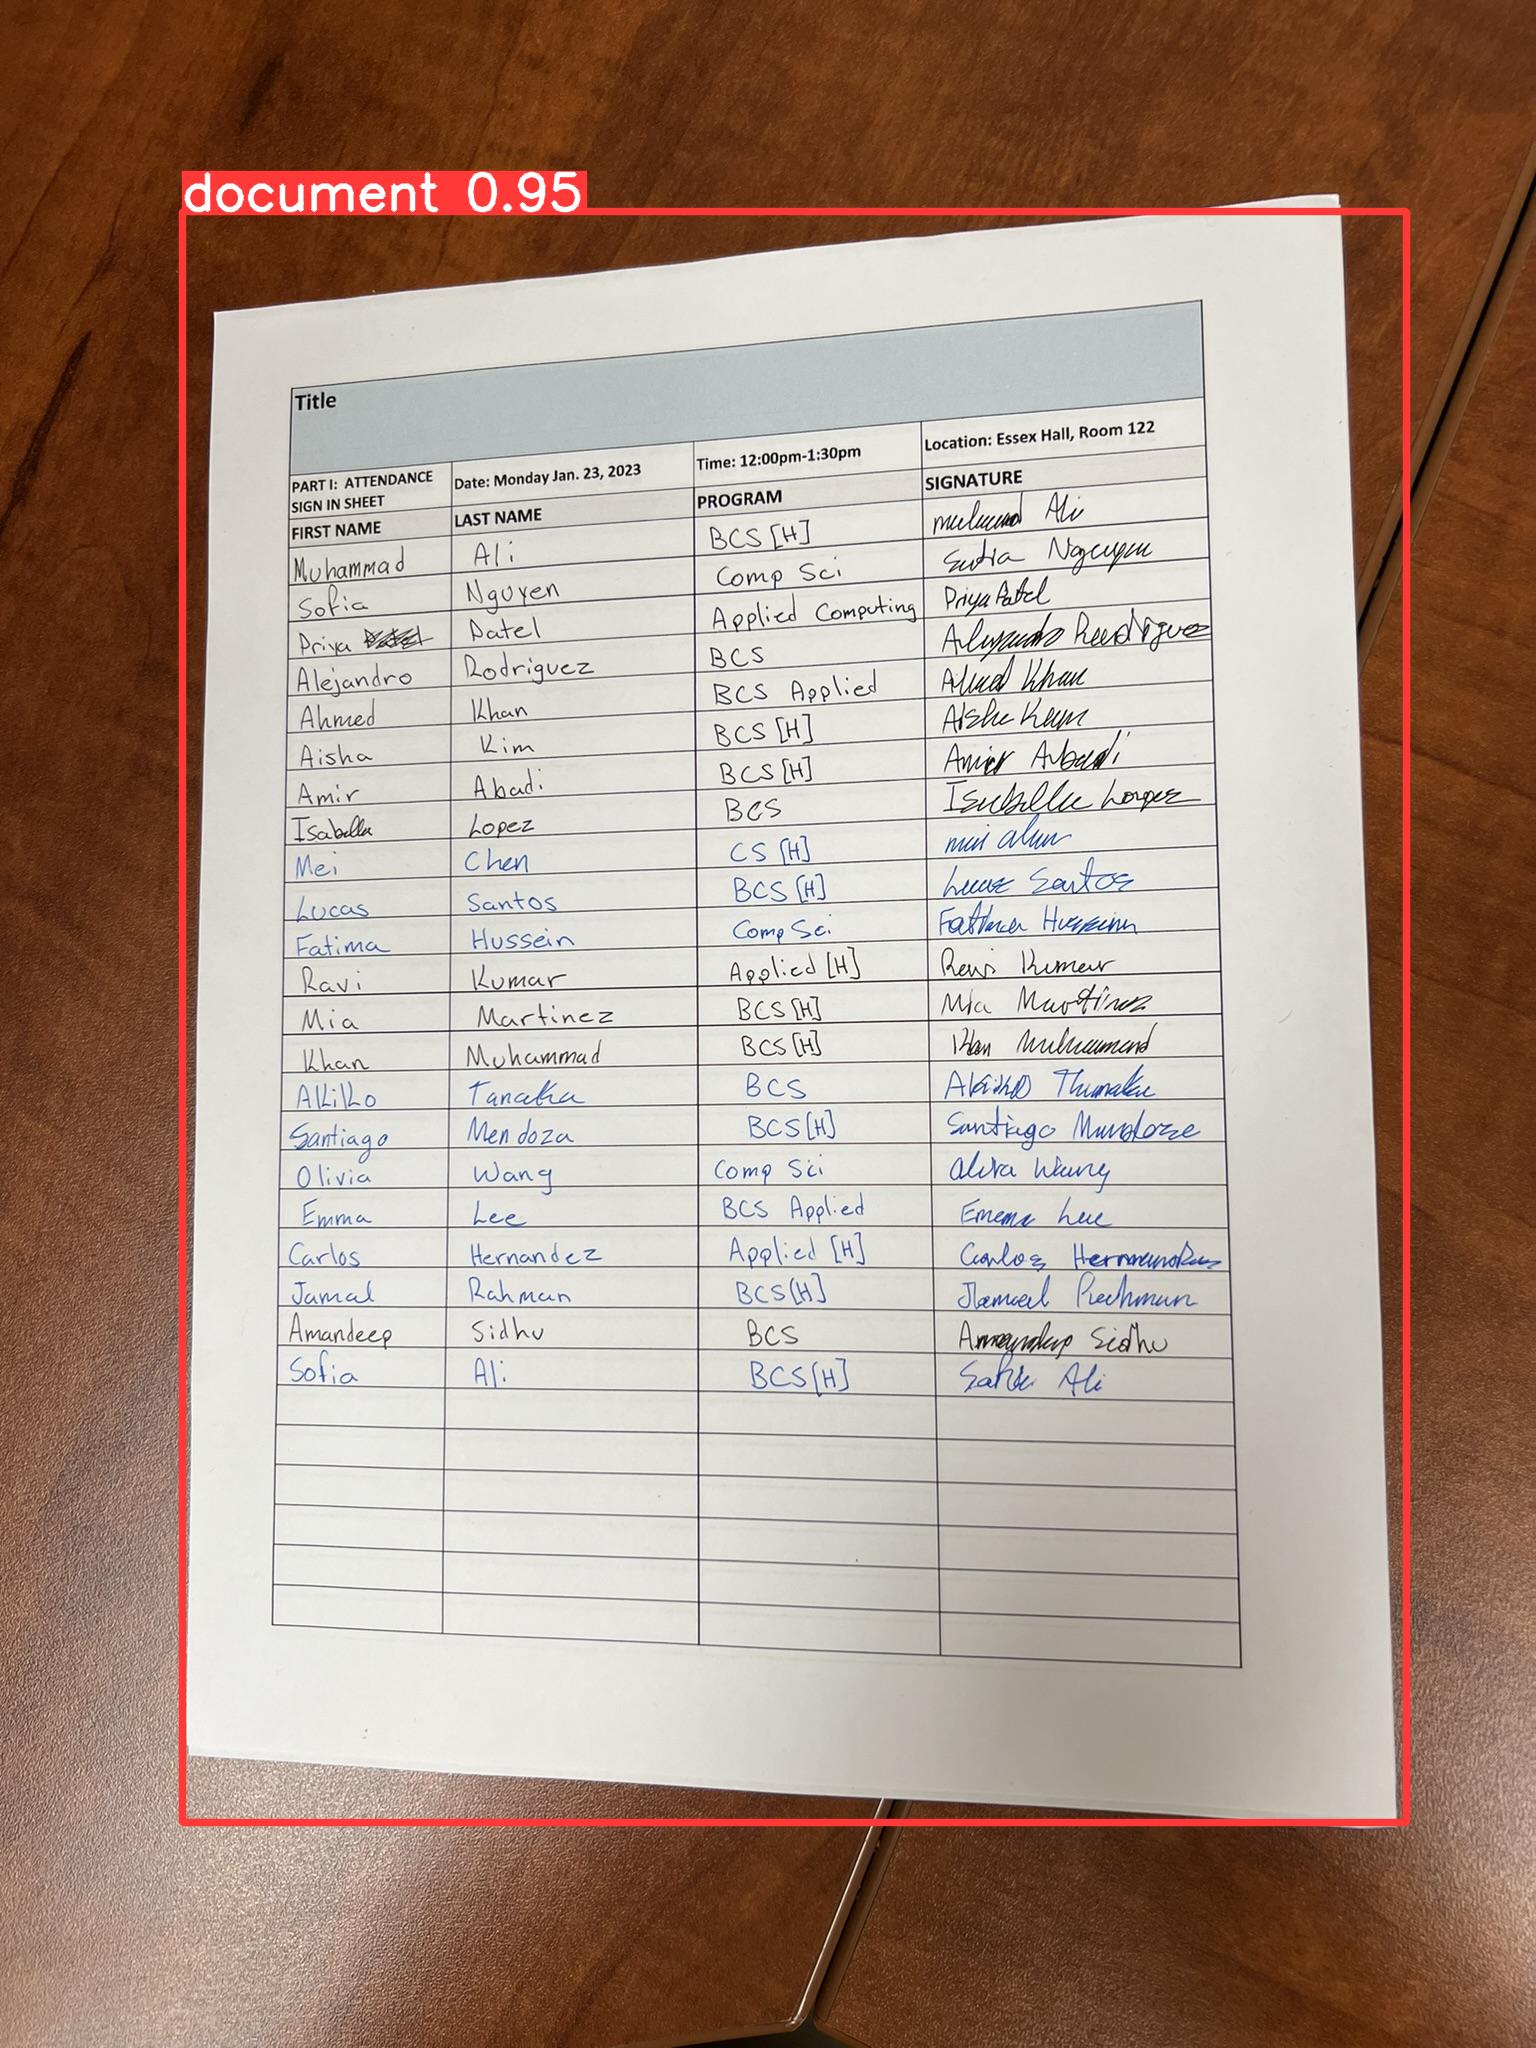 document 0.95
Title
PART I: ATTENDANCE SIGN IN SHEET Date: Monday Jan. 23, 2023 Time: 12:00pm-1:30pm Location: Essex Hall, Room 122
FIRST NAME LAST NAME PROGRAM SIGNATURE
Muhammad Ali BCS [H] Ali
Sofia Nguyen Comp Sci Nguyen
Priya Patel Applied Computing Priya Patel
Alejandro Rodriguez BCS Alejandro Rodriguez
Ahmed Khan BCS Applied Ahmed Khan
Aisha Kim BCS [H] Aisha
Amir Abadi BCS [H] Amir Abadi
Isabella Lopez BCS Isabella Lopez
Mei Chen CS [H]
Lucas Santos BCS [H] Lucas Santos
Fatima Hussein Comp Sci Fatima Hussein
Ravi Kumar Applied [H] Ravi Kumar
Mia Martinez BCS [H] Mia Martinez
Khan Muhammad BCS [H] Khan Muhammad
Akiko Tanaka BCS
Santiago Mendoza BCS [H] Santiago Mendoza
Olivia Wang Comp Sci Wang
Emma Lee BCS Applied Emma Lee
Carlos Hernandez Applied [H] Carlos Hernandez
Jamal Rahman BCS [H] Jamal Rahman
Amandeep Sidhu BCS Amandeep Sidhu
Sofia Ali BCS [H] Ali